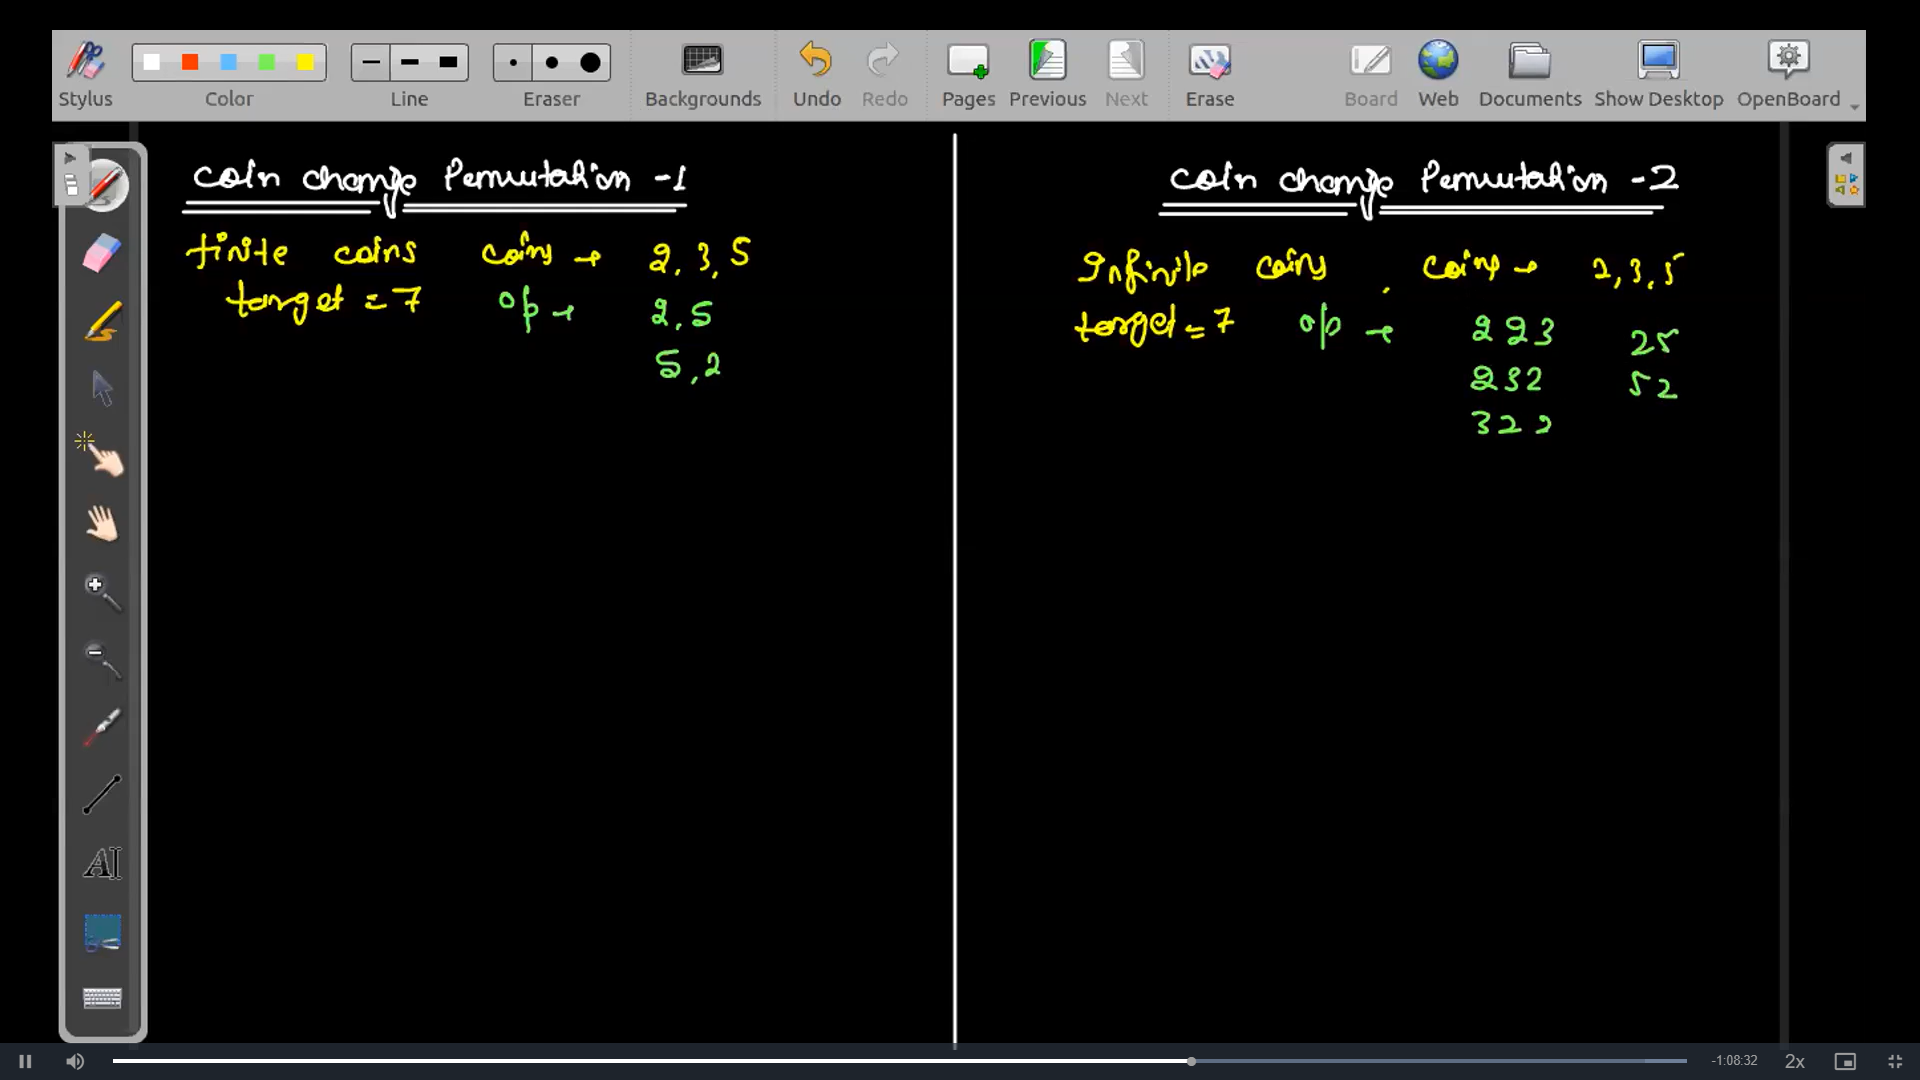 Stylus Color Line Eraser Backgrounds Undo Redo Pages Previous Next Erase Board Web Documents Show Desktop OpenBoard
coin change Permutation -1
finite coins coins → 2, 3, 5
target = 7 o/p → 2, 5
5, 2
coin change Permutation -2
Infinite coins, coins → 2, 3, 5
target = 7 o/p → 2 2 3 2 5
2 3 2 5 2
3 2 2
AI
-1:08:32 2x